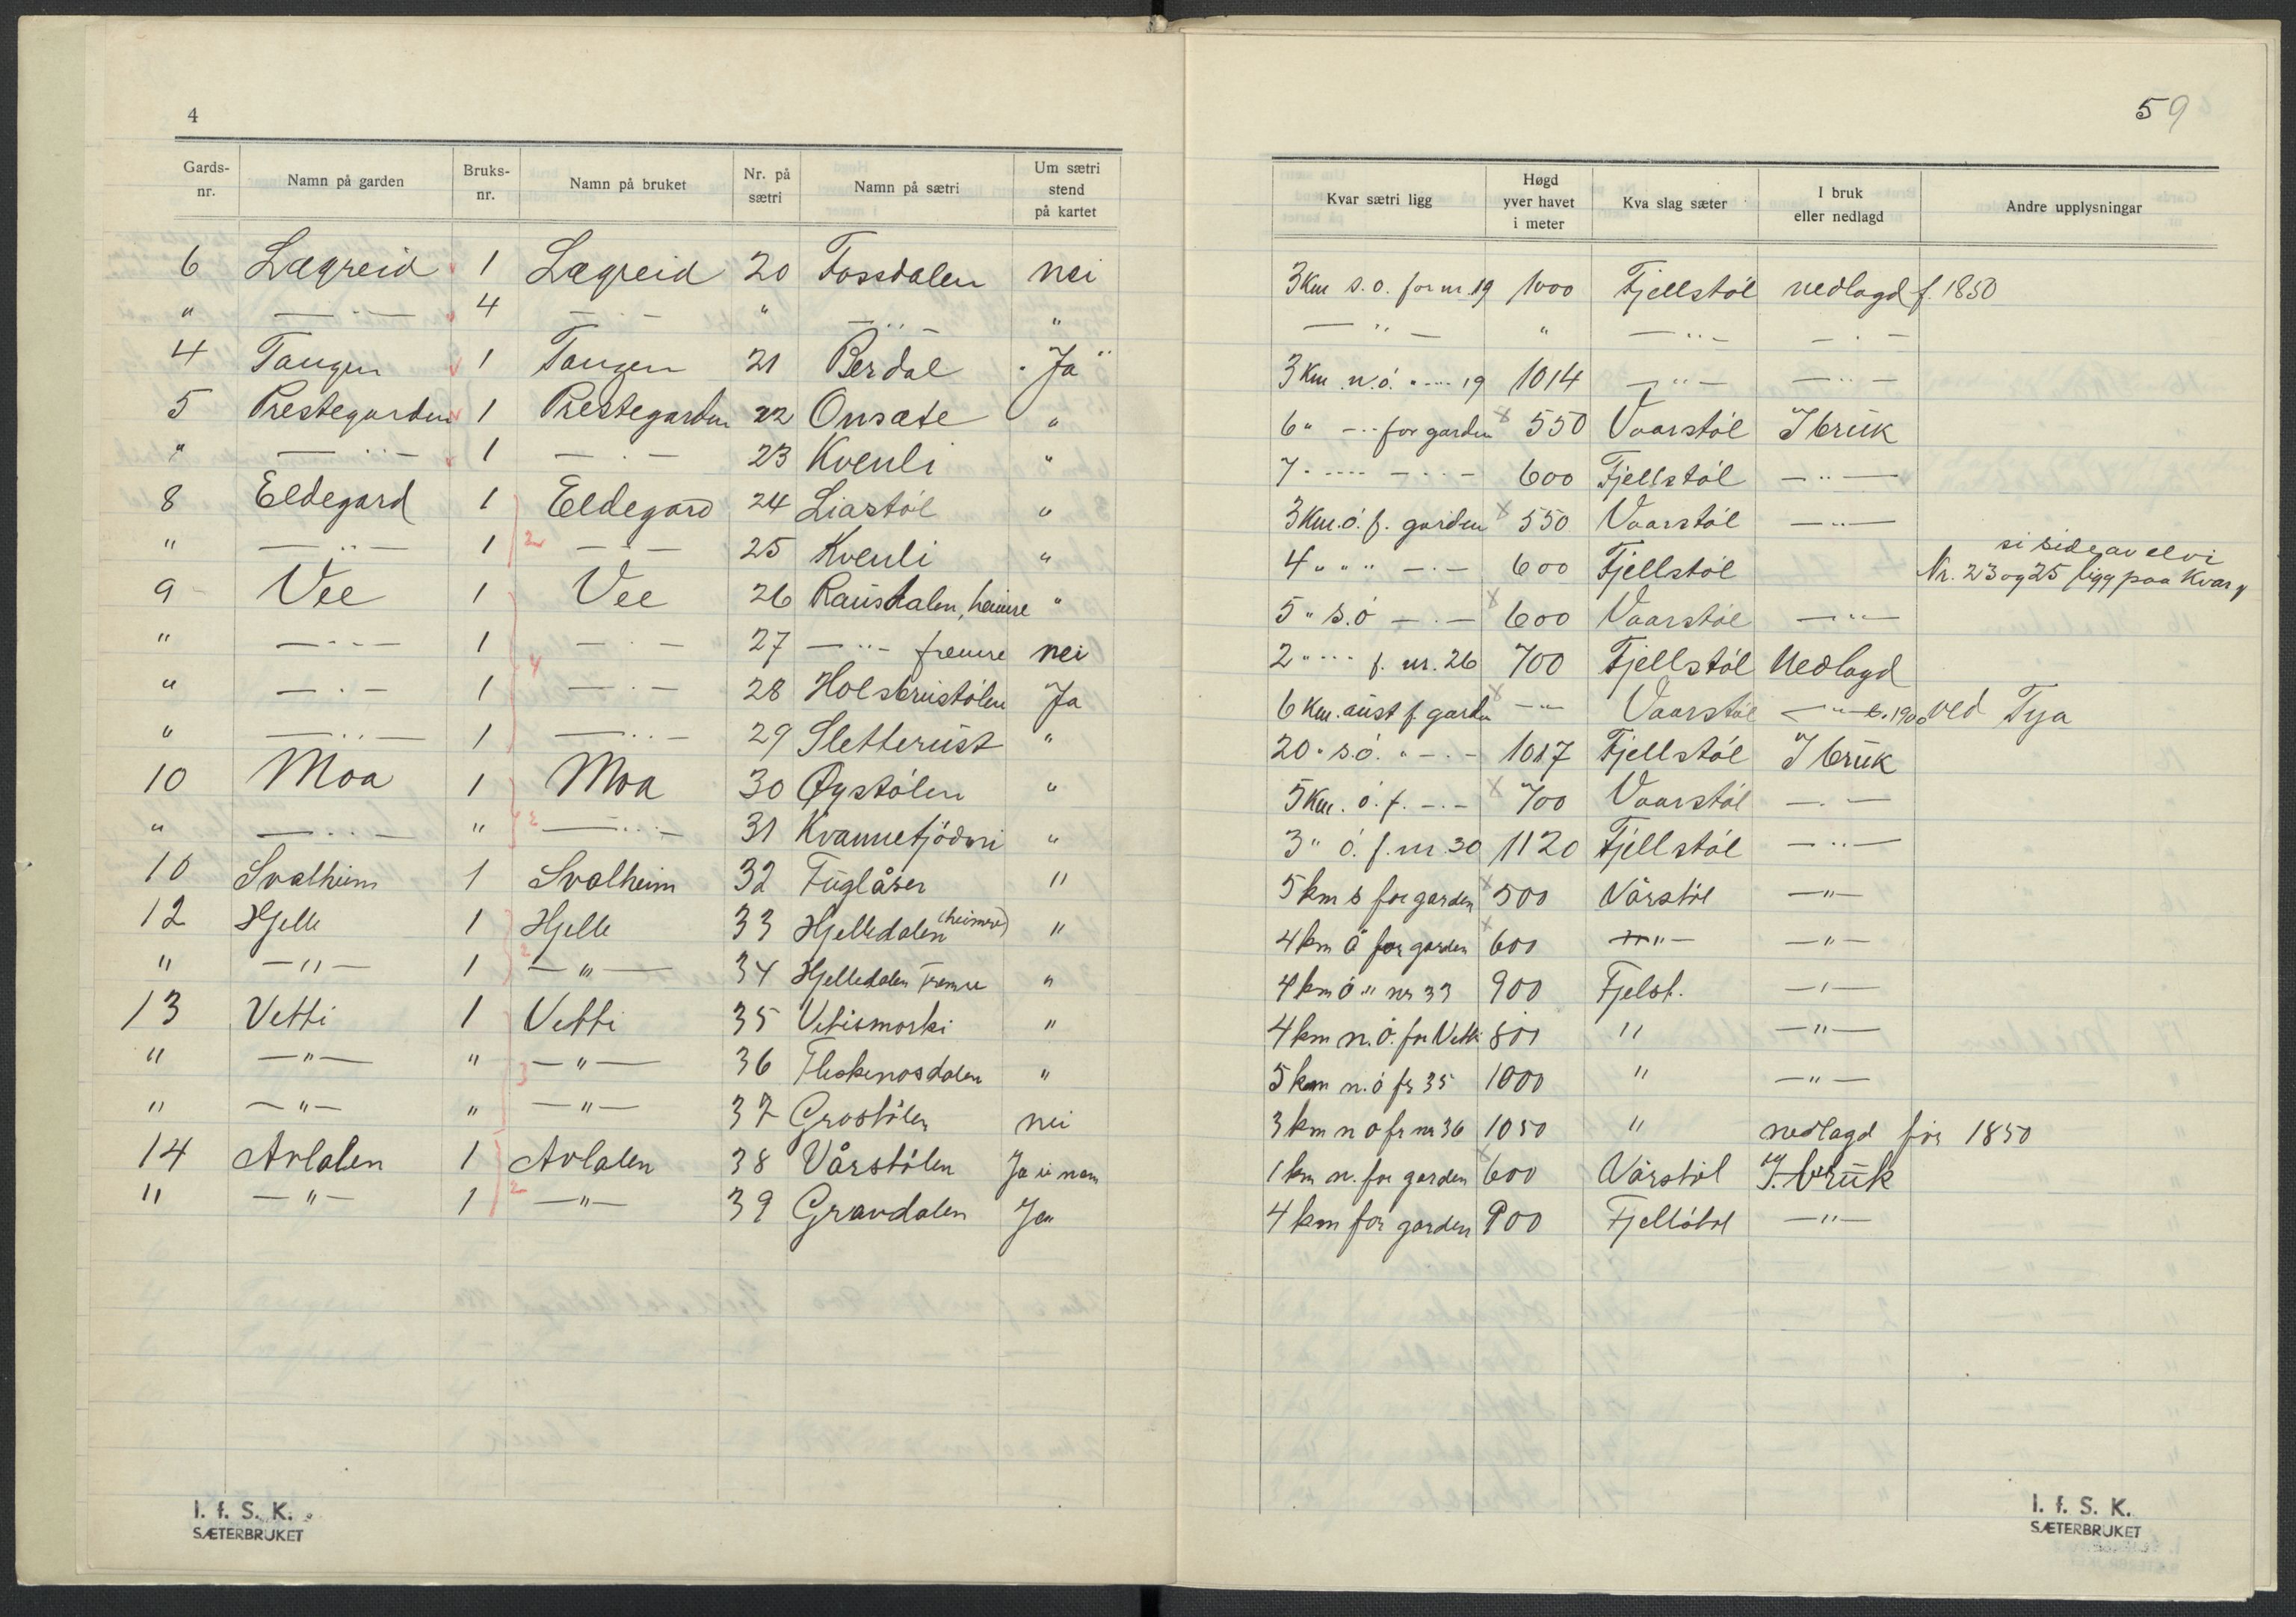 4
Gards-nr. Namn på garden Bruks-nr. Namn på bruket Nr. på sætri Namn på sætri Um sætri stend på kartet
6 Lægreid 1 Lægreid 20 Fossdalen nei
" —"— 4 —"— " —"— "
4 Tangen 1 Tangen 21 Berdal Ja
5 Prestegarden 1 Prestegarden 22 Onsæte "
" —"— 1 —"— 23 Kvenli "
8 Eldegard 1 Eldegard 24 Liastöl "
" —"— 1 2 —"— 25 Kvenli "
9 Vee 1 Vee 26 Rausdalen, heimre "
" —"— 1 —"— 27 —"— fremre nei
" —"— 1 4 —"— 28 Holsbrustölen Ja
" —"— 1 —"— 29 Sletterust "
10 Moa 1 Moa 30 Øystölen "
" —"— " 2 —"— 31 Kvannetjödni "
10 Svalheim 1 Svalheim 32 Fuglåser "
12 Hjelle 1 Hjelle 33 Hjelledalen (heimre) "
" —"— 1 2 —"— 34 Hjelledalen Fremre "
13 Vetti 1 Vetti 35 Vetismorki "
" —"— " 3 —"— 36 Fleskenosdalen "
" —"— " —"— 37 Grostölen nei
14 Avlalen 1 Avlalen 38 Vårstölen Ja
" —"— 1 2 —"— 39 Gravdalen Ja
I. f. S. K.
SÆTERBRUKET
59
Kvar sætri ligg Høgd yver havet i meter Kva slag sæter I bruk eller nedlagd Andre upplysningar
3 Km s.o. for nr. 19 1000 Fjellstöl nedlagd f. 1850
—"— " —"— —"—
3 Km. n.ö. " 19 1014 —"— —"—
6 " —"— for garden x 550 Vaarstöl I bruk
7 " —"— 600 Fjellstöl —"—
3 Km. ö. f. garden x 550 Vaarstöl —"—
4 " " " —"— 600 Fjellstöl Nr. 23 og 25 ligg paa Kvar si side av elvi
5 " s.ö —"— x 600 Vaarstöl —"—
2 " " f. nr. 26 700 Fjellstöl Nedlagd
6 Km. aust f. garden x —"— Vaarstöl —"— 1900 ved Tya
20 " s.ö. " —"— 1017 Fjellstöl I bruk
5 Km. ö. f. —"— x 700 Vaarstöl —"—
3 " ö. f. nr. 30 1120 Fjellstöl —"—
5 km s for garden x 500 Vårstöl —"—
4 km ö for garden x 600 —"— —"—
4 km ö " nr 33 900 Fjelst. —"—
4 km n.ö. for Vetti 800 " —"—
5 km n.ö fr 35 1000 " —"—
3 km n ö fr nr 36 1050 " nedlagd för 1850
1 km n. for garden x 600 Vårstöl I. bruk
4 km for garden 900 Fjellstöl —"—
I. f. S. K.
SÆTERBRUKET